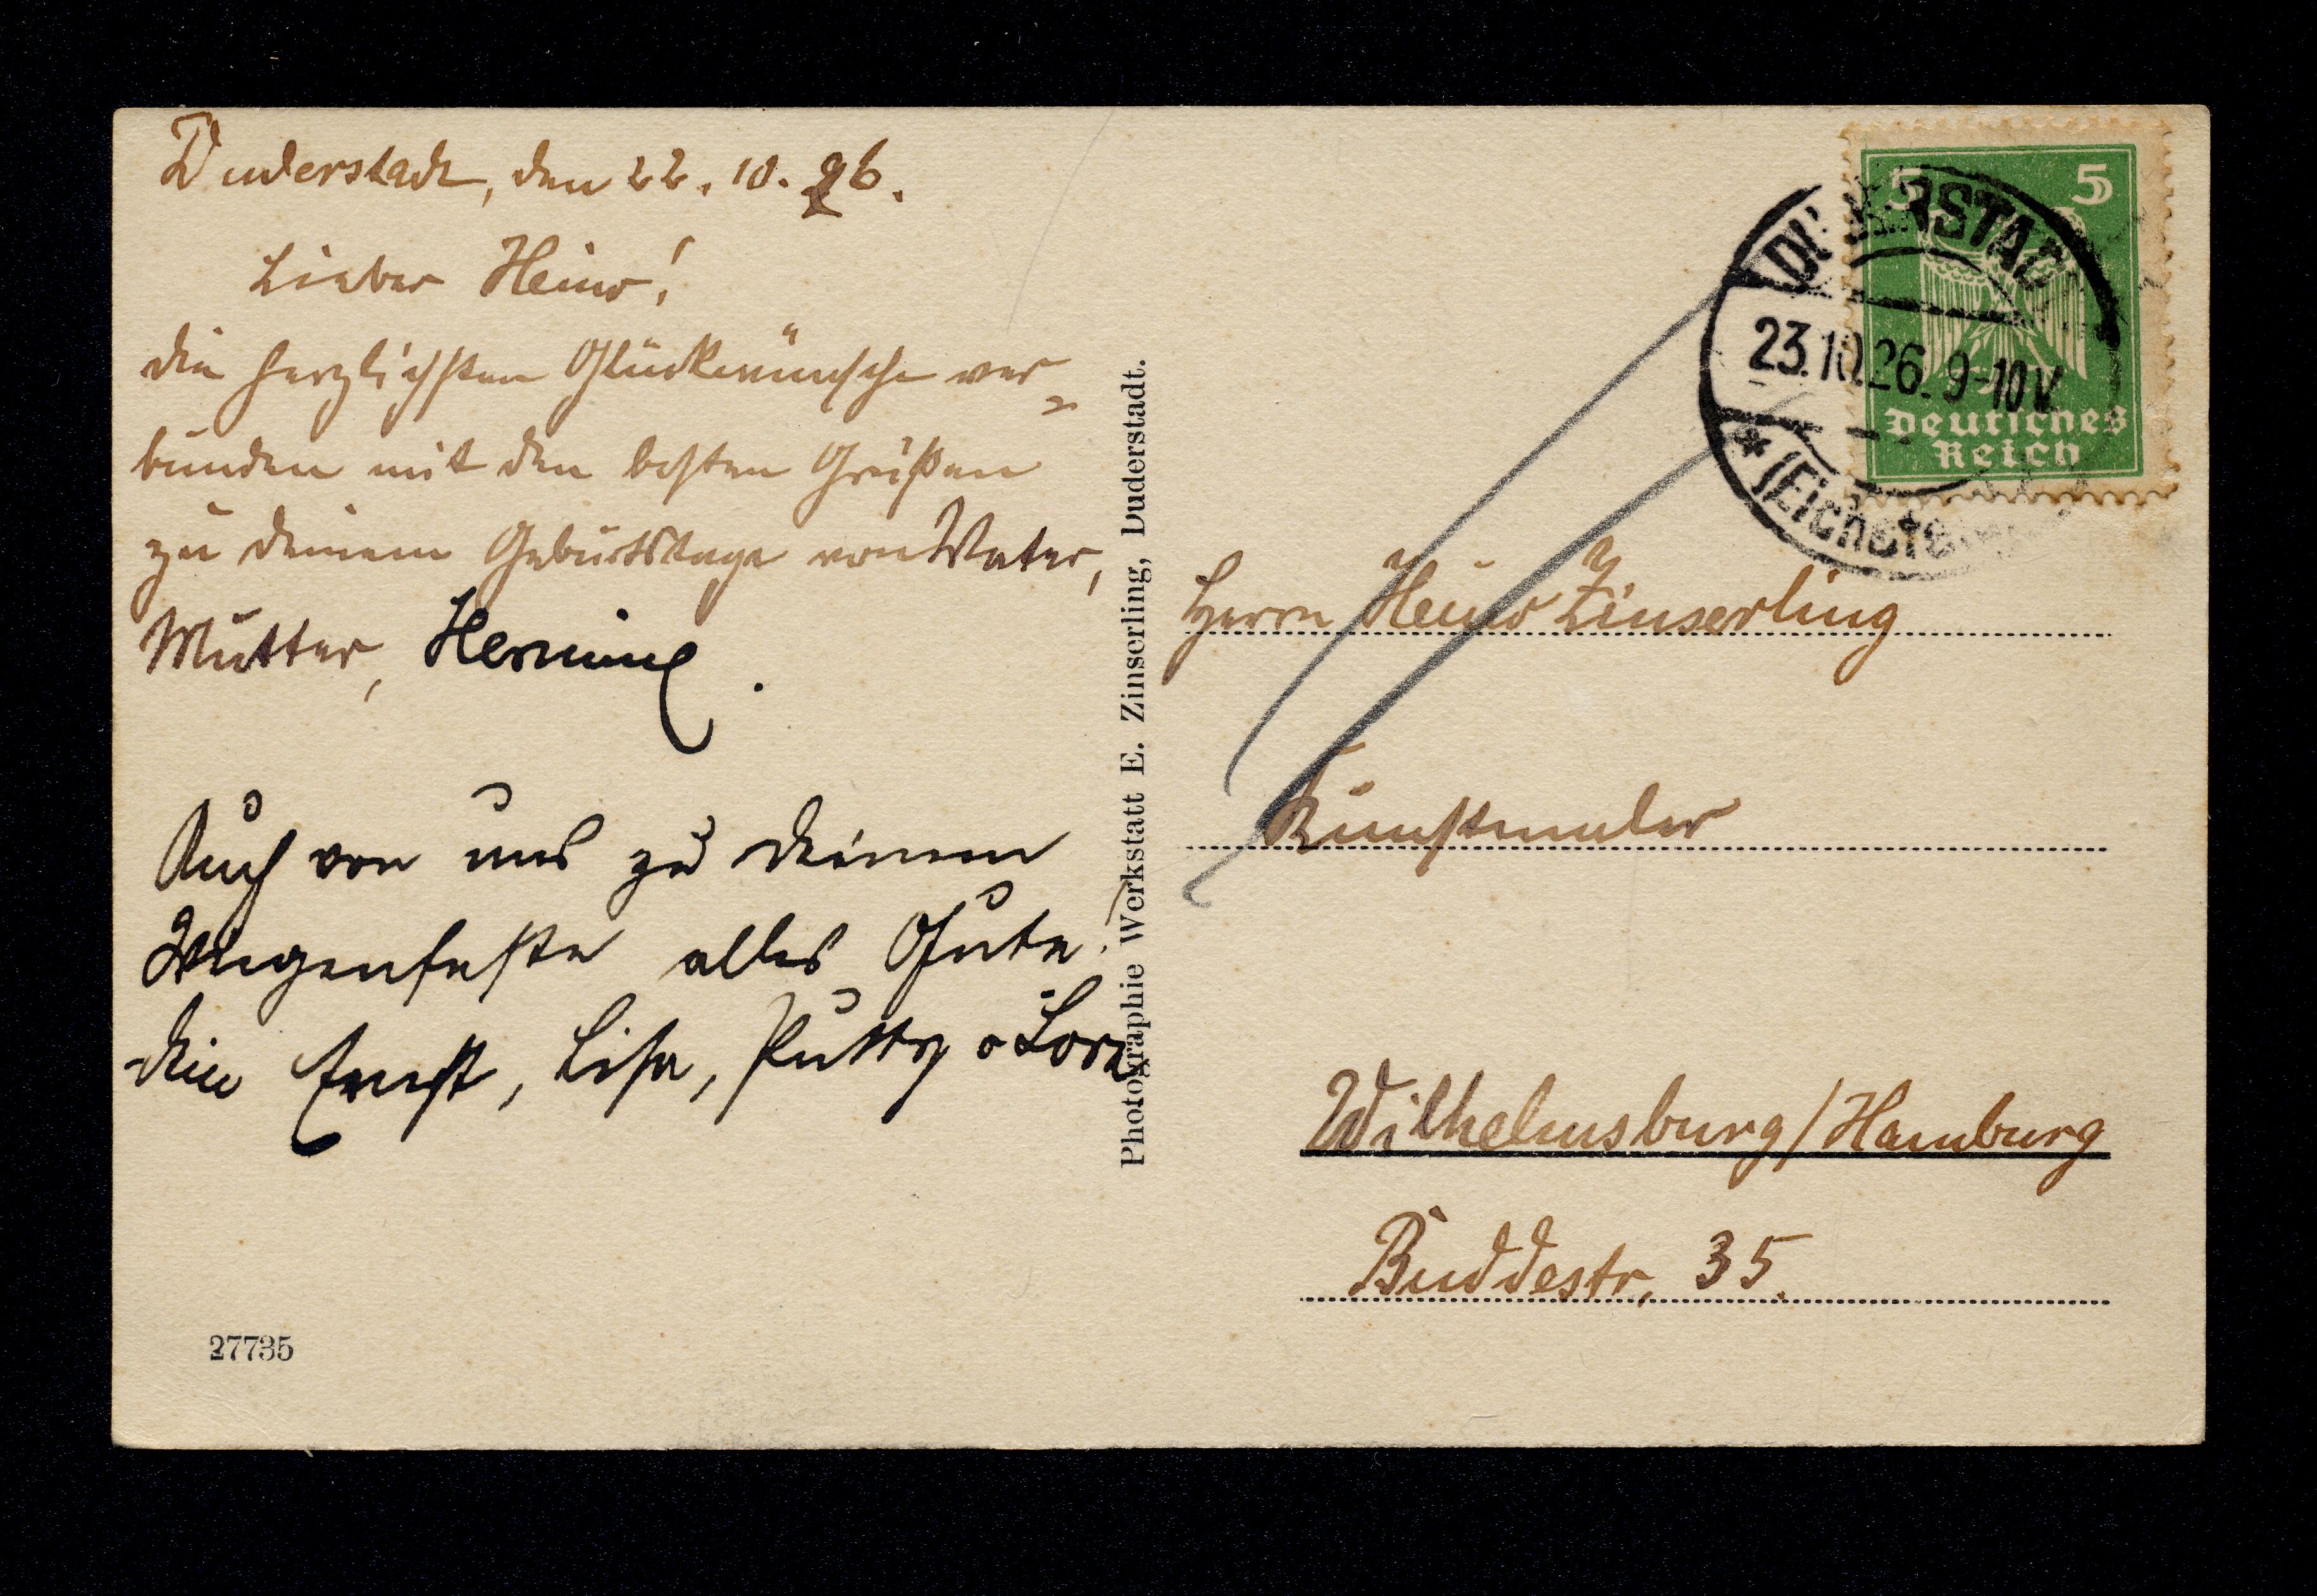 Duderstadt, den 22. 10. 26.
Lieber Heino!
die herzlichsten Glückwünsche ver=
bunden mit den besten Grüßen
zu deinem Geburtstage von Vater,
Mutter, Hermine.
Auch von uns zu deinem
Wiegenfeste alles Gute!
dein Ernst, Lisa, Putty u Lore
27735
Photographie Werkstatt E. Zinserling, Duderstadt.
5 5
Deutsches
Reich
DUDERSTADT
23.10.26. 9-10V
* (Eichsfeld)
Herrn Heino Zinserling
Kunstmaler
Wilhelmsburg/Hamburg
Buddestr. 35.